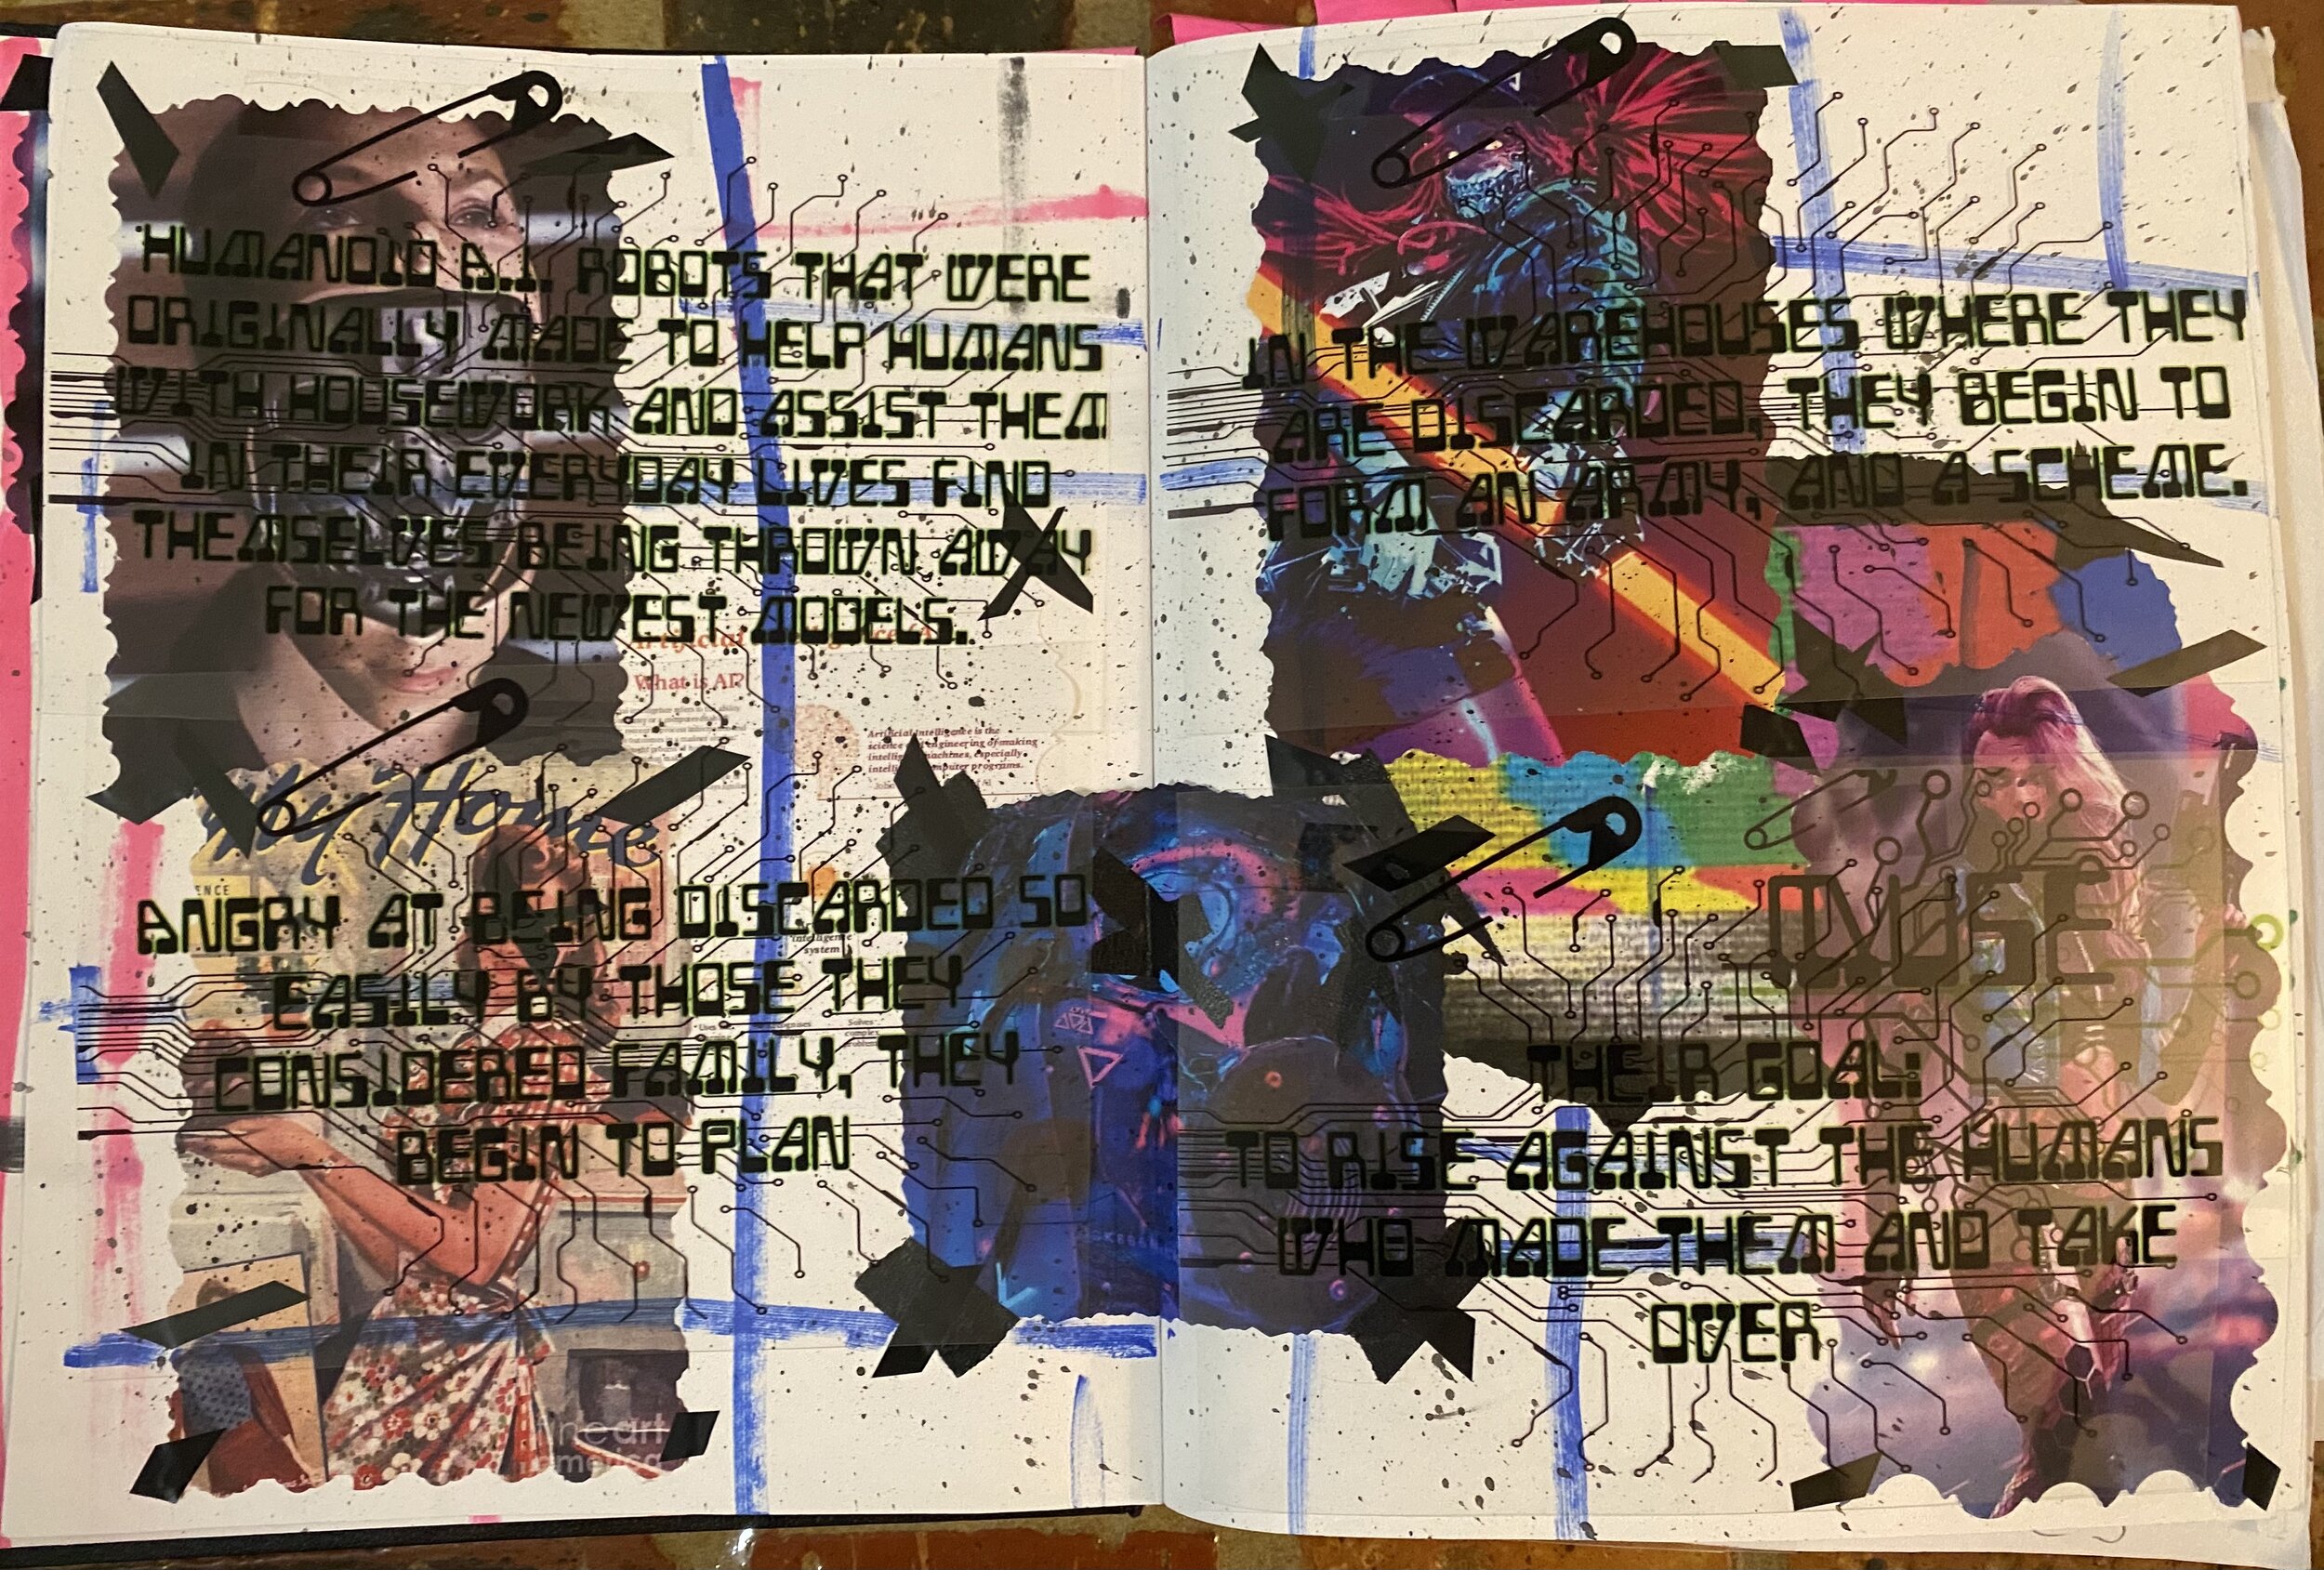 HUMANOID A.I. ROBOTS THAT WERE
ORIGINALLY MADE TO HELP HUMANS
WITH HOUSEWORK AND ASSIST THEM
IN THEIR EVERYDAY LIVES FIND
THEMSELVES BEING THROWN AWAY
FOR THE NEWEST MODELS.
Artificial
What is AI?
Artificial Intelligence is the
science and engineering of making
intelligent machines, especially
intelligent computer programs.
My Home
ANGRY AT BEING DISCARDED SO
intelligence
system
EASILY BY THOSE THEY
CONSIDERED FAMILY, THEY
BEGIN TO PLAN
fine art
america
IN THE WAREHOUSES WHERE THEY
ARE DISCARDED, THEY BEGIN TO
FORM AN ARMY, AND A SCHEME.
MUSE
THEIR GOAL:
TO RISE AGAINST THE HUMANS
WHO MADE THEM AND TAKE
OVER